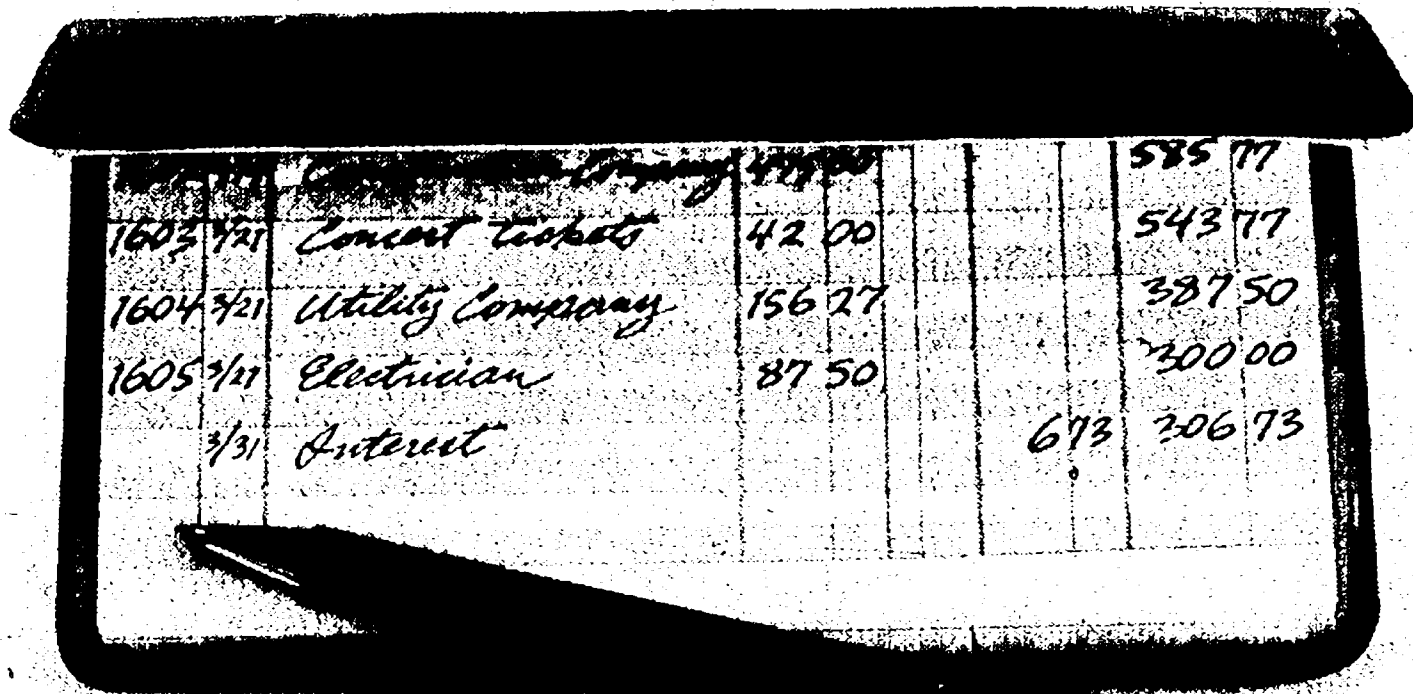 Company 585 77
1603 3/21 Concert tickets 42 00 543 77
1604 3/21 Utility Company 156 27 387 50
1605 3/21 Electrician 87 50 300 00
3/31 Interest 6 73 306 73